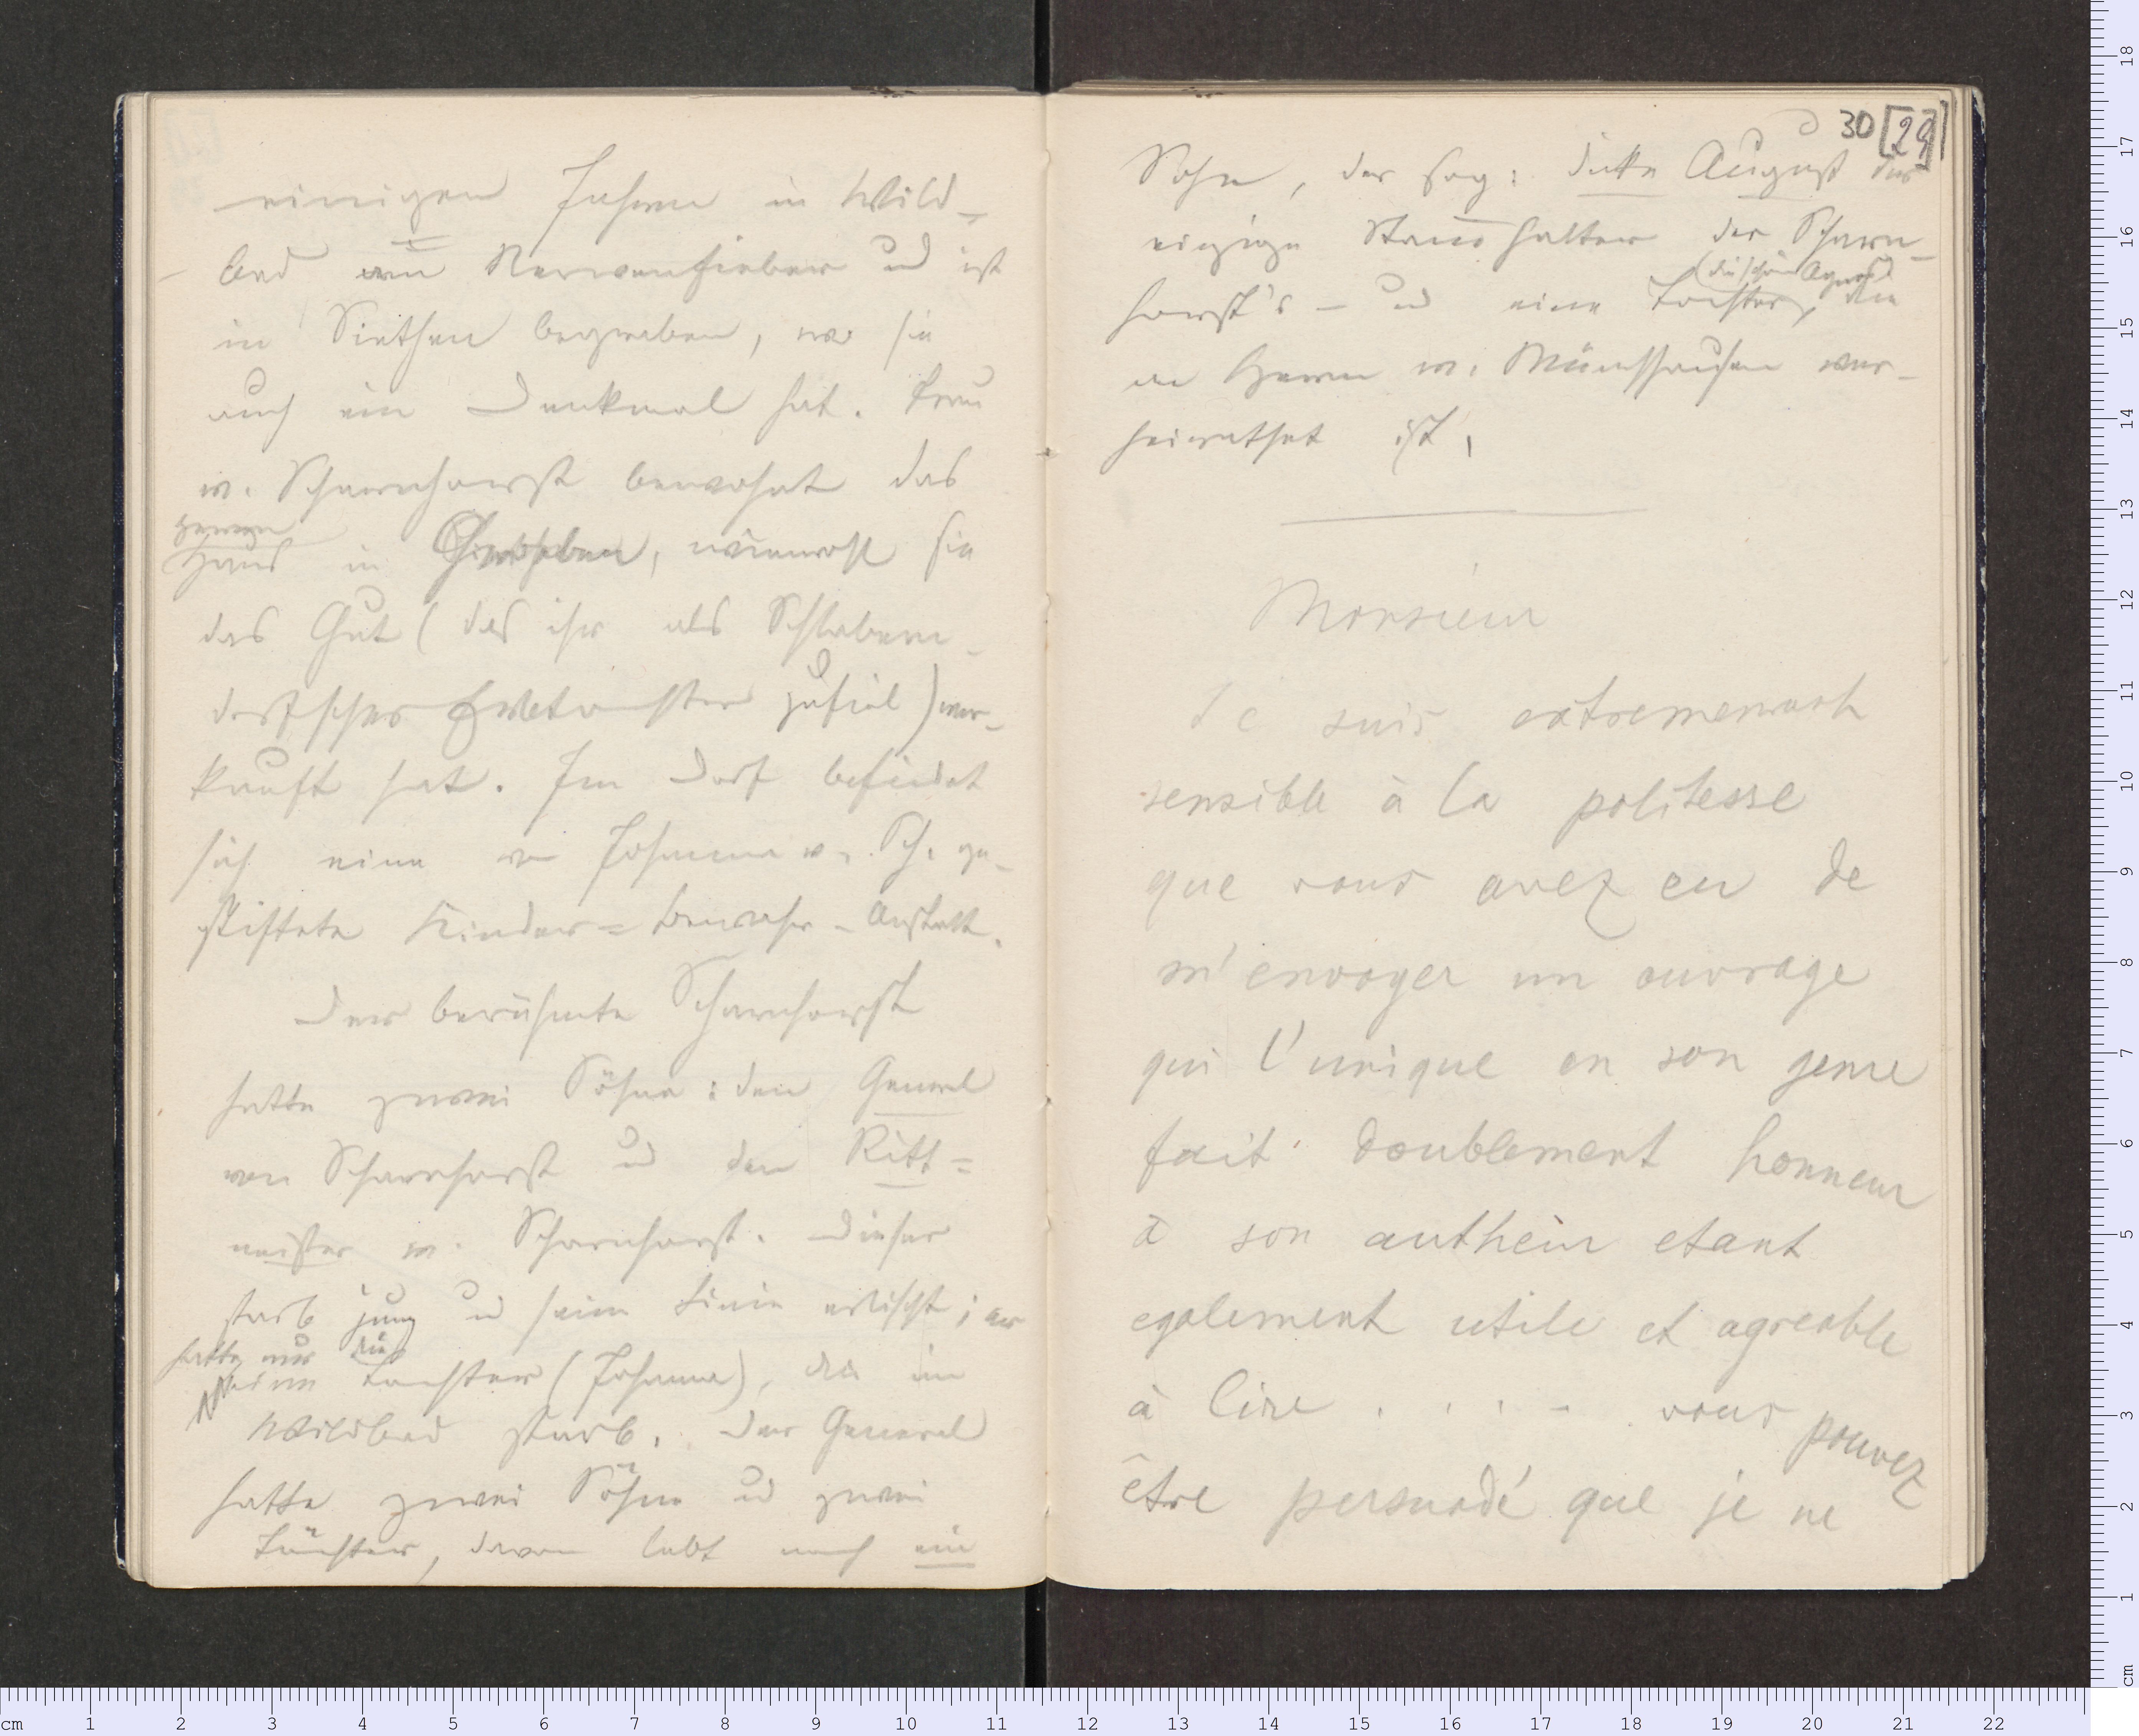 einigen Jahren in Wild-
bad am Nervenfieber und ist
in Siethen begraben, wo sie
auch ein Denkmal hat. Frau
v. Scharnhorst bewohnt das
Herren
Haus in Gröben, wiewohl sie
das Gut (das ihr als Schlabern-
dorfscher Erbtochter zufiel) ver-
kauft hat. Im Dorf befindet
sich eine von Johanna v. Sch. ge-
stiftete Kinder=Bewahr-Anstalt.
Der berühmte Scharnhorst
hatte zwei Söhne: den General
von Scharnhorst und den Ritt=
meister v. Scharnhorst. Dieser
starb jung und seine Linie erlischt; er
hatte nur die
eine Tochter (Johanna), die in
Wildbad starb. Der General
hatte zwei Söhne und zwei
Töchter, davon lebt noch ein
30 [29]
Sohn, der sog: dicke August der
einzige Stammhalter der Scharn-
(die schöne Agnes)
horst's – und eine Tochter, die
an Herrn v. Münchhausen ver-
heirathet ist.
Monsieur
Je suis extremement
sensible à la politesse
que vous avez eu de
m'envoyer un ouvrage
qui l'unique en son genre
fait doublement honneur
à son autheur etant
egalement utile et agreable
à lire . . . . vous pouvez
être persuadé que je ne